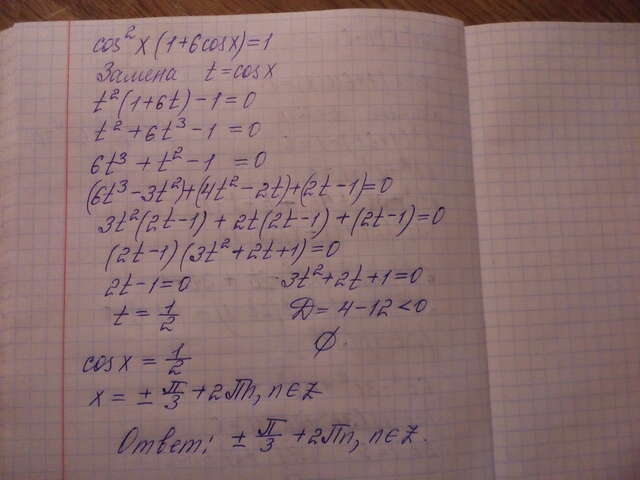 cos²x(1+6cosx)=1
Замена t=cosx
t²(1+6t)-1=0
t²+6t³-1=0
6t³+t²-1=0
(6t³-3t²)+(4t²-2t)+(2t-1)=0
3t²(2t-1)+2t(2t-1)+(2t-1)=0
(2t-1)(3t²+2t+1)=0
2t-1=0 3t²+2t+1=0
t=1/2 Д=4-12<0
∅.
cosx=1/2
x=±π/3+2πn, n∈Z
Ответ: ±π/3+2πn, n∈Z.